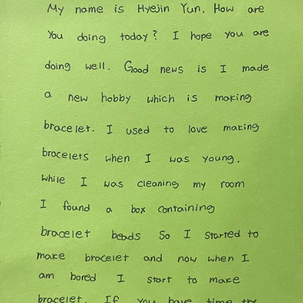 My name is Hyejin Yun. How are
you doing today? I hope you are
doing well. Good news is I made
a new hobby which is making
bracelet. I used to love making
bracelets when I was young.
While I was cleaning my room
I found a box containing
bracelet beads So I started to
make bracelet and now when I
am bored I start to make
bracelet. If you have time try